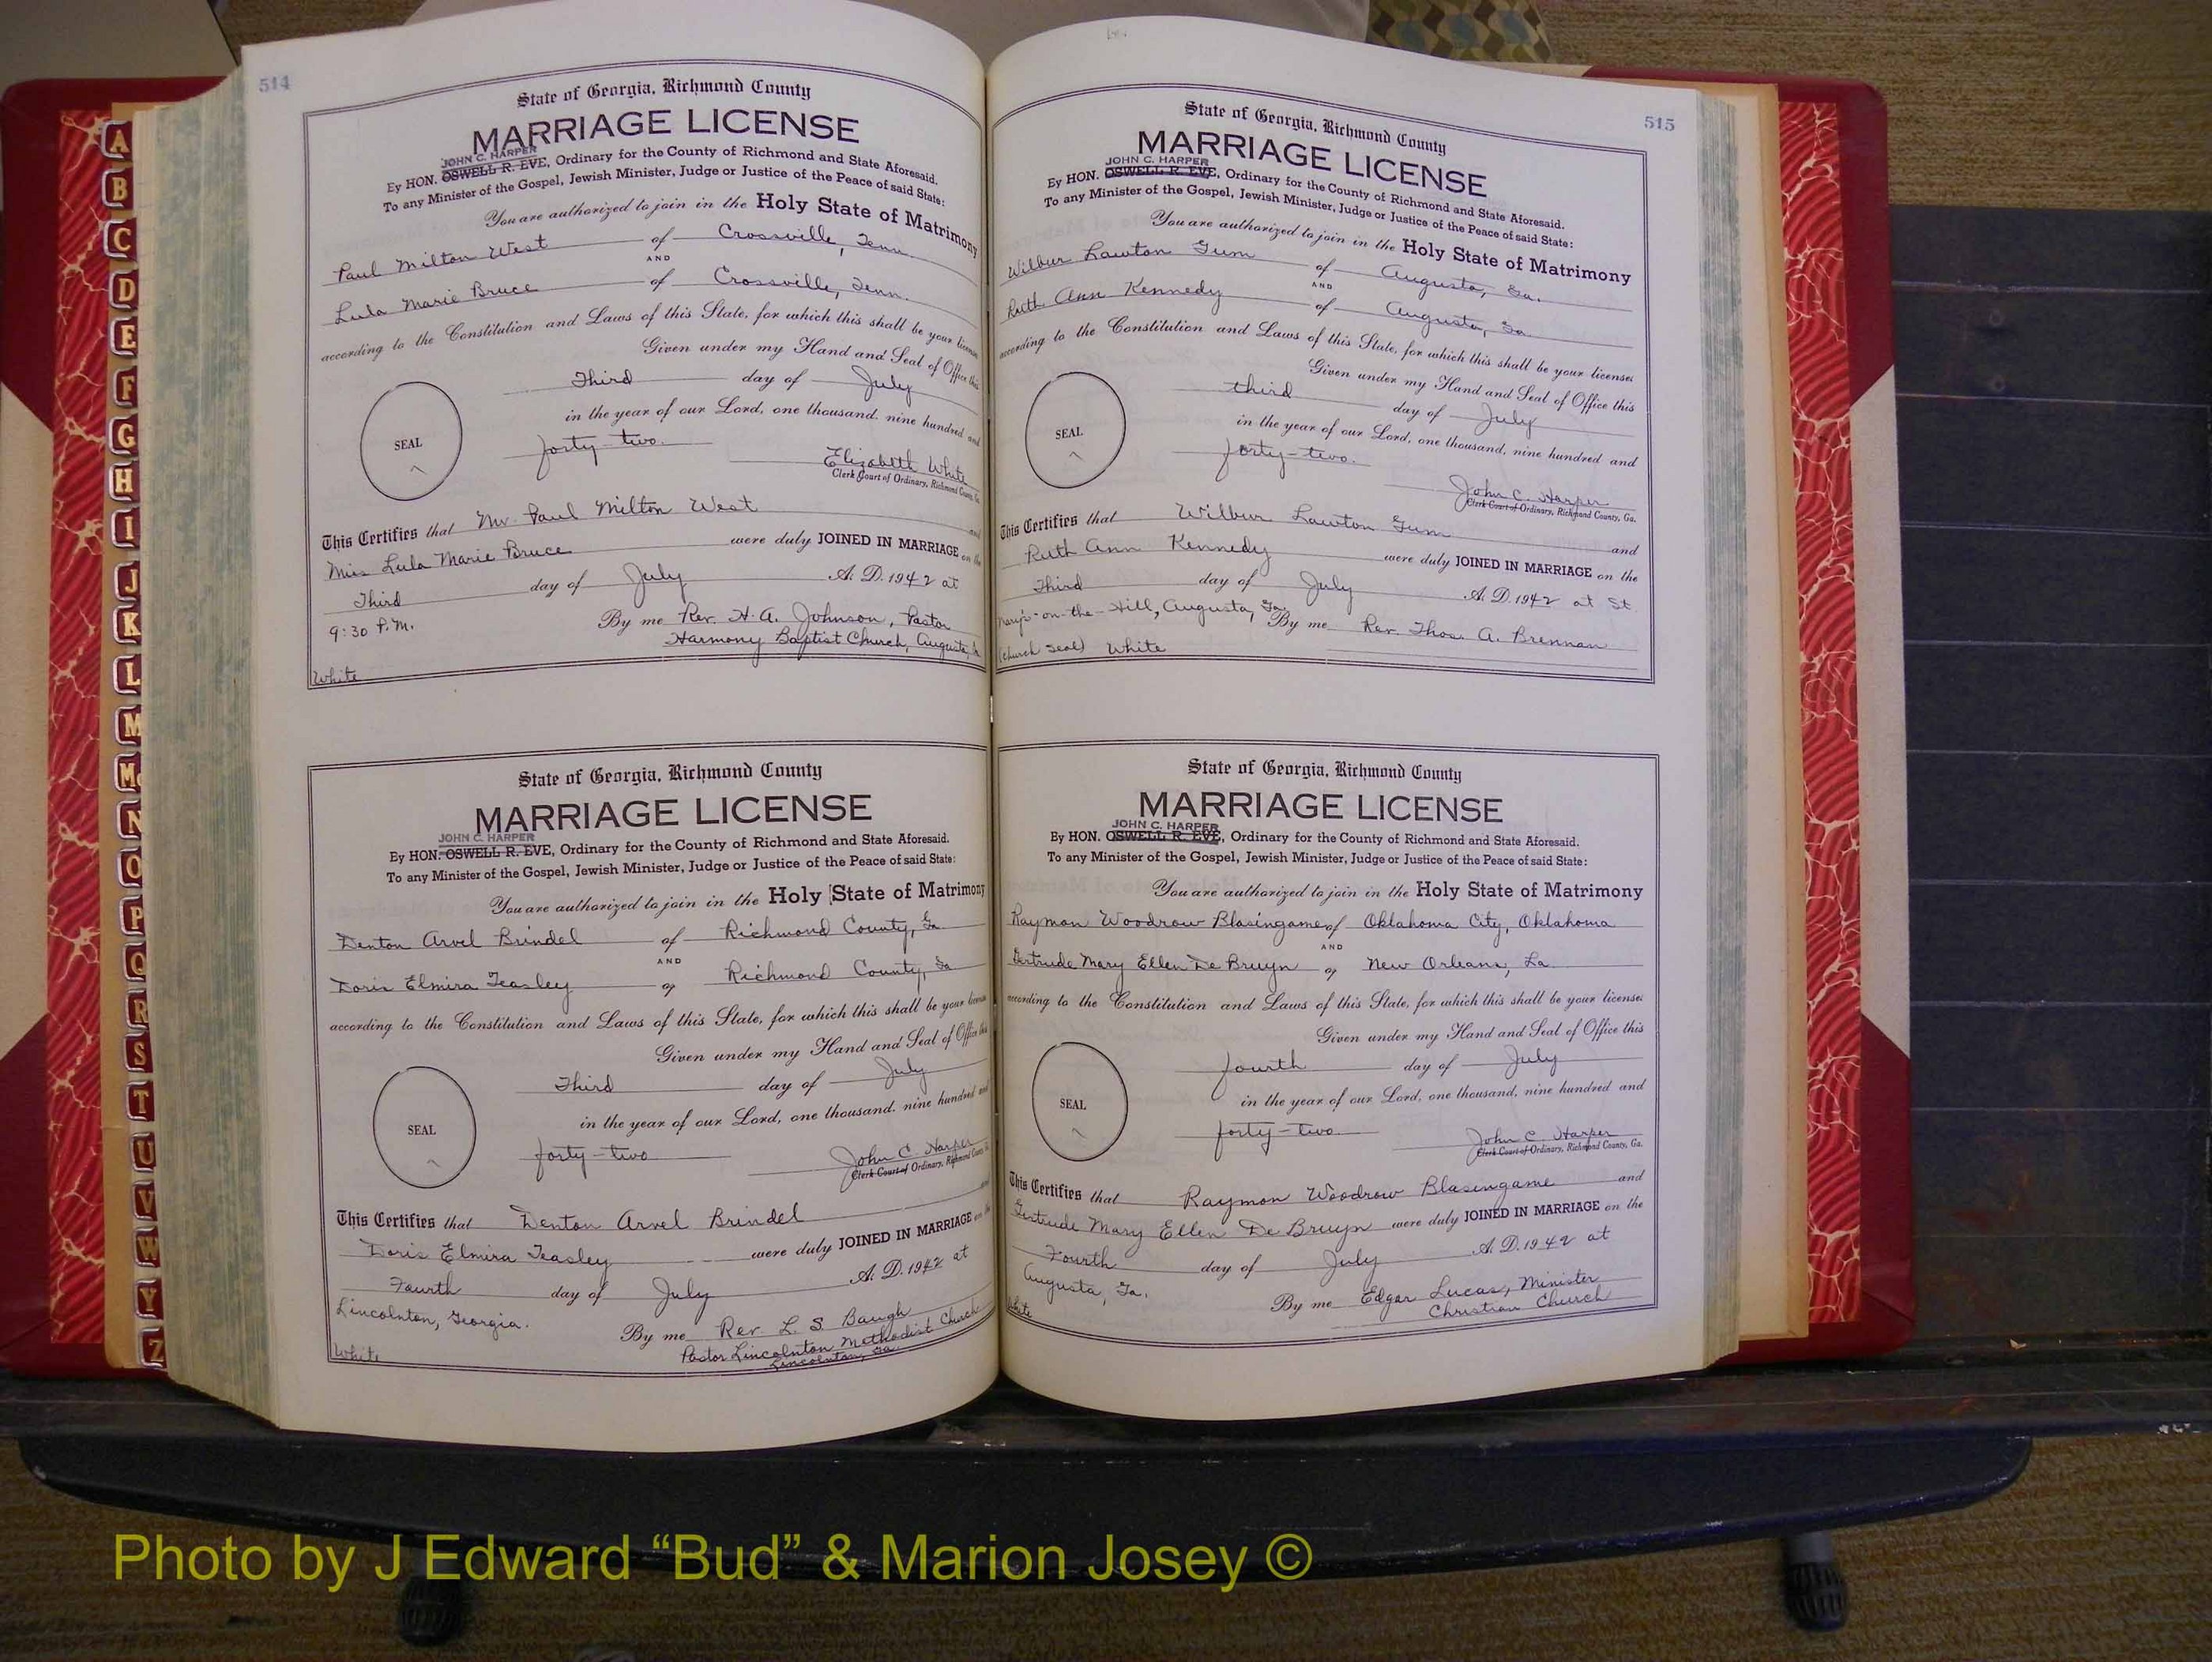 514
State of Georgia, Richmond County
MARRIAGE LICENSE
JOHN C. HARPER
By HON. OSWELL R. EVE, Ordinary for the County of Richmond and State Aforesaid.
To any Minister of the Gospel, Jewish Minister, Judge or Justice of the Peace of said State:
You are authorized to join in the Holy State of Matrimony
Paul Milton West of Crossville, Tenn.
AND
Lula Marie Bruce of Crossville, Tenn.
according to the Constitution and Laws of this State, for which this shall be your license
Given under my Hand and Seal of Office this
Third day of July
in the year of our Lord, one thousand, nine hundred and
SEAL
forty-two.
Elizabeth White
Clerk Court of Ordinary, Richmond County, Ga.
This Certifies that Mr. Paul Milton West and
Miss Lula Marie Bruce were duly JOINED IN MARRIAGE on the
Third day of July A. D. 1942 at
9:30 P.M. By me Rev. H. A. Johnson, Pastor
Harmony Baptist Church, Augusta, Ga
White
State of Georgia, Richmond County
MARRIAGE LICENSE
JOHN C. HARPER
By HON. OSWELL R. EVE, Ordinary for the County of Richmond and State Aforesaid.
To any Minister of the Gospel, Jewish Minister, Judge or Justice of the Peace of said State:
You are authorized to join in the Holy State of Matrimony
Denton Arvel Brindel of Richmond County, Ga
AND
Doris Elmira Teasley of Richmond County, Ga
according to the Constitution and Laws of this State, for which this shall be your license
Given under my Hand and Seal of Office this
Third day of July
in the year of our Lord, one thousand, nine hundred and
SEAL
forty-two
John C. Harper
Clerk Court of Ordinary, Richmond County, Ga.
This Certifies that Denton Arvel Brindel and
Doris Elmira Teasley were duly JOINED IN MARRIAGE on the
Fourth day of July A. D. 1942 at
Lincolnton, Georgia. By me Rev. L. S. Baugh
Pastor Lincolnton Methodist Church
Lincolnton, Ga.
White
515
State of Georgia, Richmond County
MARRIAGE LICENSE
JOHN C. HARPER
By HON. OSWELL R. EVE, Ordinary for the County of Richmond and State Aforesaid.
To any Minister of the Gospel, Jewish Minister, Judge or Justice of the Peace of said State:
You are authorized to join in the Holy State of Matrimony
Wilbur Lawton Gum of Augusta, Ga.
AND
Ruth Ann Kennedy of Augusta, Ga
according to the Constitution and Laws of this State, for which this shall be your license
Given under my Hand and Seal of Office this
third day of July
in the year of our Lord, one thousand, nine hundred and
SEAL
forty-two.
John C. Harper
Clerk Court of Ordinary, Richmond County, Ga.
This Certifies that Wilbur Lawton Gum and
Ruth Ann Kennedy were duly JOINED IN MARRIAGE on the
Third day of July A. D. 1942 at St
Mary's-on-the-Hill, Augusta, Ga. By me Rev. Thos. A. Brennan
(Church Seal) White
State of Georgia, Richmond County
MARRIAGE LICENSE
JOHN C. HARPER
By HON. OSWELL R. EVE, Ordinary for the County of Richmond and State Aforesaid.
To any Minister of the Gospel, Jewish Minister, Judge or Justice of the Peace of said State:
You are authorized to join in the Holy State of Matrimony
Raymon Woodrow Blasingame of Oklahoma City, Oklahoma
AND
Gertrude Mary Ellen De Bruyn of New Orleans, La.
according to the Constitution and Laws of this State, for which this shall be your license
Given under my Hand and Seal of Office this
fourth day of July
in the year of our Lord, one thousand, nine hundred and
SEAL
forty-two
John C. Harper
Clerk Court of Ordinary, Richmond County, Ga.
This Certifies that Raymon Woodrow Blasingame and
Gertrude Mary Ellen De Bruyn were duly JOINED IN MARRIAGE on the
Fourth day of July A. D. 1942 at
Augusta, Ga. By me Edgar Lucas, Minister
Christian Church
White
A
B
C
D
E
F
G
H
I
J
K
L
M
Mc
N
O
P
Q
R
S
T
U
V
W
Y
Z
Photo by J Edward “Bud” & Marion Josey ©